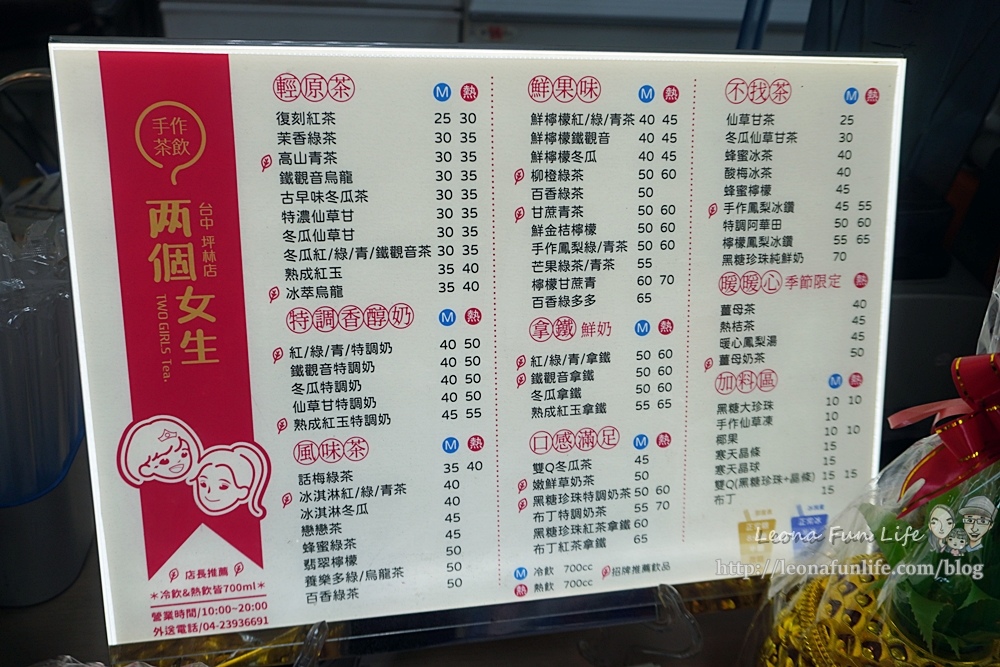 手作
茶飲
两個女生
台中 坪林店
TWO GIRLS Tea.
店長推薦
*冷飲&熱飲皆700ml*
營業時間/10:00~20:00
外送電話/04-23936691
輕原茶 M 熱
復刻紅茶 25 30
茉香綠茶 30 35
高山青茶 30 35
鐵觀音烏龍 30 35
古早味冬瓜茶 30 35
特濃仙草甘 30 35
冬瓜仙草甘 30 35
冬瓜紅/綠/青/鐵觀音茶 30 35
熟成紅玉 35 40
冰萃烏龍 35 40
特調香醇奶 M 熱
紅/綠/青/特調奶 40 50
鐵觀音特調奶 40 50
冬瓜特調奶 40 50
仙草甘特調奶 40 50
熟成紅玉特調奶 45 55
風味茶 M 熱
話梅綠茶 35 40
冰淇淋紅/綠/青茶 40
冰淇淋冬瓜 40
戀戀茶 45
蜂蜜綠茶 45
翡翠檸檬 50
養樂多綠/烏龍茶 50
百香綠茶 50
鮮果味 M 熱
鮮檸檬紅/綠/青茶 40 45
鮮檸檬鐵觀音 40 45
鮮檸檬冬瓜 40 45
柳橙綠茶 50 60
百香綠茶 50
甘蔗青茶 50 60
鮮金桔檸檬 50 60
手作鳳梨綠/青茶 50 60
芒果綠茶/青茶 55
檸檬甘蔗青 60 70
百香綠多多 65
拿鐵 鮮奶 M 熱
紅/綠/青/拿鐵 50 60
鐵觀音拿鐵 50 60
冬瓜拿鐵 50 60
熟成紅玉拿鐵 55 65
口感滿足 M 熱
雙Q冬瓜茶 45
嫩鮮草奶茶 50
黑糖珍珠特調奶茶 50 60
布丁特調奶茶 55 70
黑糖珍珠紅茶拿鐵 60
布丁紅茶拿鐵 65
M 冷飲 700cc 招牌推薦飲品
熱 熱飲 700cc
不找茶 M 熱
仙草甘茶 25
冬瓜仙草甘茶 30
蜂蜜冰茶 40
酸梅冰茶 40
蜂蜜檸檬 45
手作鳳梨冰鑽 45 55
特調阿華田 50 60
檸檬鳳梨冰鑽 55 65
黑糖珍珠純鮮奶 70
暖暖心 季節限定 熱
薑母茶 40
熱桔茶 45
暖心鳳梨湯 45
薑母奶茶 50
加料區 M 熱
黑糖大珍珠 10 10
手作仙草凍 10
椰果 10 10
寒天晶條 15
寒天晶球 15
雙Q(黑糖珍珠+晶條) 15 15
布丁 15
正常冰
Leona Fun Life
http://leonafunlife.com/blog